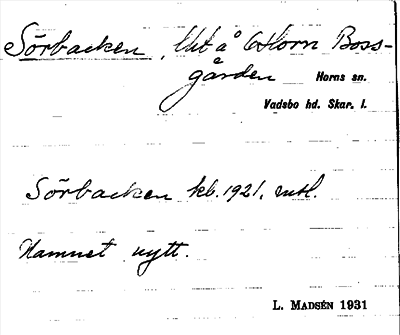 Sörbacken, Utb. å Horn Boss-
gården Horns sn.
Vadsbo hd. Skar. l.
Sörbacken kb. 1921, mtl.
Namnet nytt.
L. MADSÉN 1931